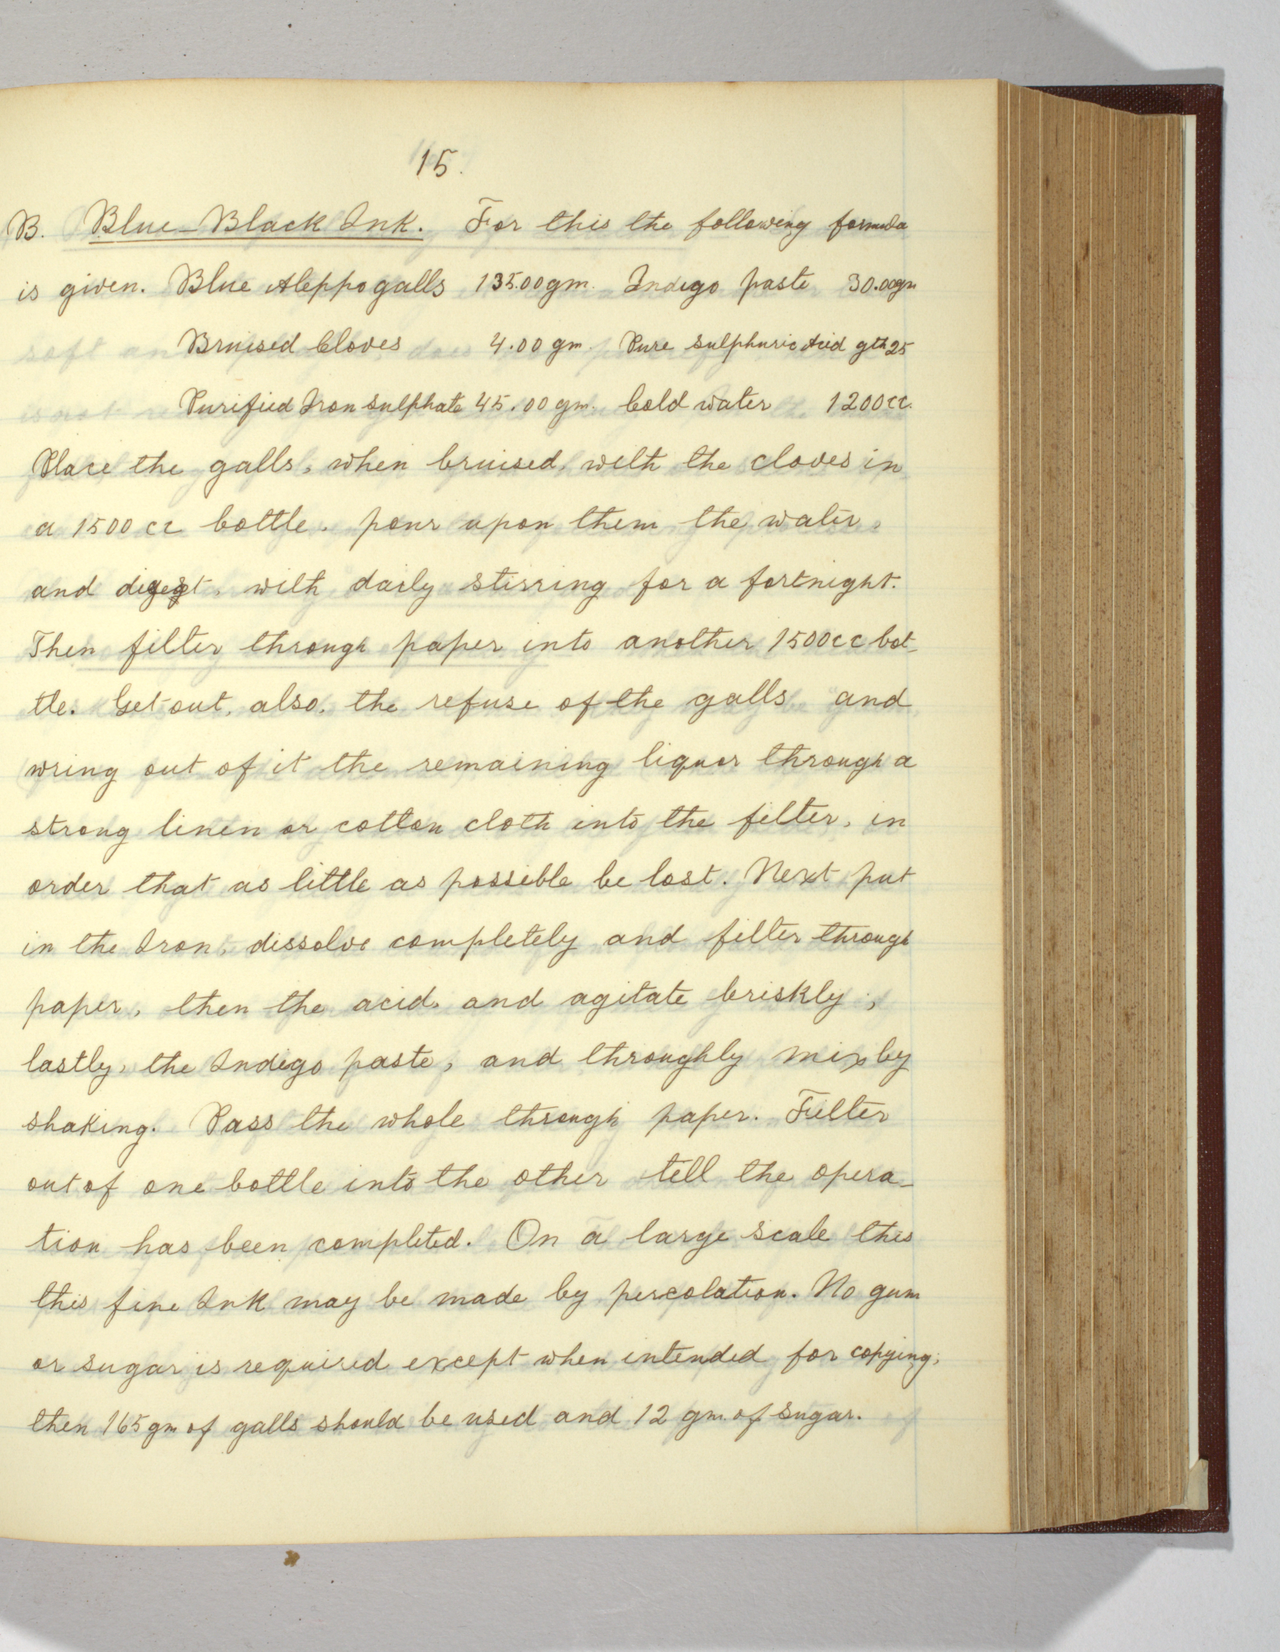 15.
B. Blue-Black Ink. For this the following formula
is given. Blue Aleppo galls 135.00 gm. Indigo paste 30.00 gm
Bruised Cloves 4.00 gm. Pure Sulphuric Acid gtts 25
Purified Iron Sulphate 45.00 gm. Cold water 1200 cc.
Place the galls, when bruised, with the cloves in
a 1500 cc bottle, pour upon them the water,
and digest, with daily stirring for a fortnight.
Then filter through paper into another 1500 cc bot-
tle. Get out, also, the refuse of the galls and
wring out of it the remaining liquor through a
strong linen or cotton cloth into the filter, in
order that as little as possible be lost. Next put
in the Iron, dissolve completely and filter through
paper, then the acid, and agitate briskly;
lastly, the Indigo paste, and throughly mix by
shaking. Pass the whole through paper. Filter
out of one bottle into the other till the opera-
tion has been completed. On a large scale this
this fine Ink may be made by percolation. No gum
or sugar is required except when intended for copying;
then 165 gm of galls should be used and 12 gm of sugar.